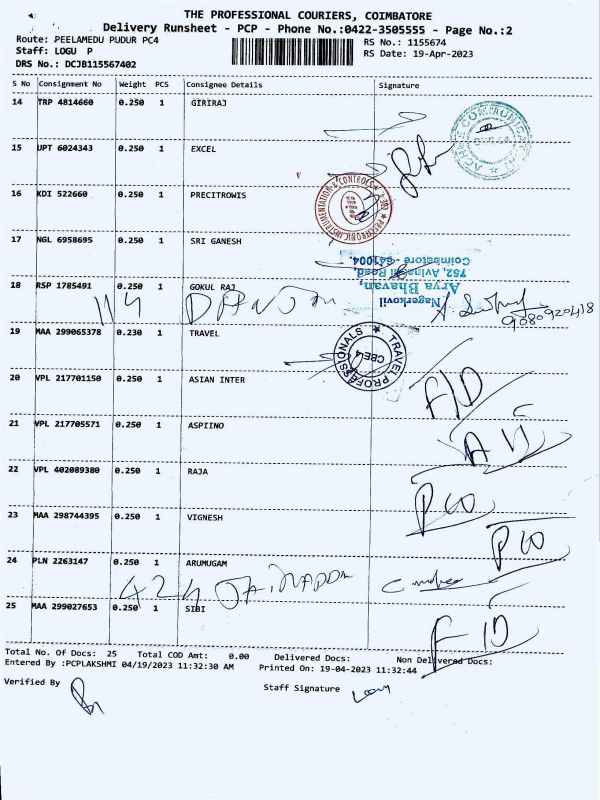 THE PROFESSIONAL COURIERS, COIMBATORE
Delivery Runsheet - PCP - Phone No.:0422-3505555 - Page No.:2
Route: PEELAMEDU PUDUR PC4
RS No.: 1155674
Staff: LOGU P
RS Date: 19-Apr-2023
DRS No.: DCJB115567402
S No Consignment No Weight PCS Consignee Details Signature
14 TRP 4814660 0.250 1 GIRIRAJ
15 UPT 6024343 0.250 1 EXCEL
16 KDI 522660 0.250 1 PRECITROWIS
17 NGL 6958695 0.250 1 SRI GANESH
Nagerkovil
Arya Bhavan,
752, Avinashi Road,
Coimbatore - 641004.
18 RSP 1785491 0.250 1 GOKUL RAJ
114
9080920418
19 MAA 299065378 0.230 1 TRAVEL
TRAVEL PROFESSIONALS
CBE4
20 VPL 217701150 0.250 1 ASIAN INTER
F/D
21 VPL 217705571 0.250 1 ASPIINO
22 VPL 402089380 0.250 1 RAJA
23 MAA 298744395 0.250 1 VIGNESH
24 PLN 2263147 0.250 1 ARUMUGAM
424
25 MAA 299027653 0.250 1 SIBI
Total No. Of Docs: 25 Total COD Amt: 0.00 Delivered Docs: Non Delivered Docs:
Entered By :PCPLAKSHMI 04/19/2023 11:32:30 AM Printed On: 19-04-2023 11:32:44
Verified By
Staff Signature